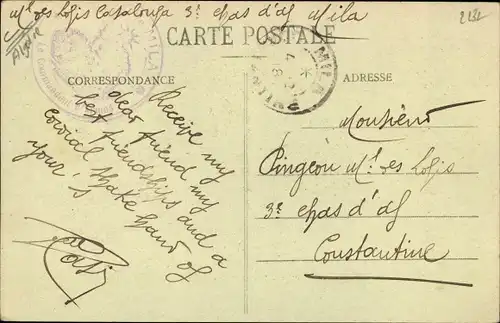 Mˡ des Logis Catalonga 3ᵉ chas d'af Mila
2132
Algérie
CARTE POSTALE
MILA
CORRESPONDANCE
ADRESSE
Receive my
dear friend my
best friendships and a
cordial shake hand of
your's
Monsieur
Pingeon Mˡ des Logis
3ᵉ chas d'af
Constantine